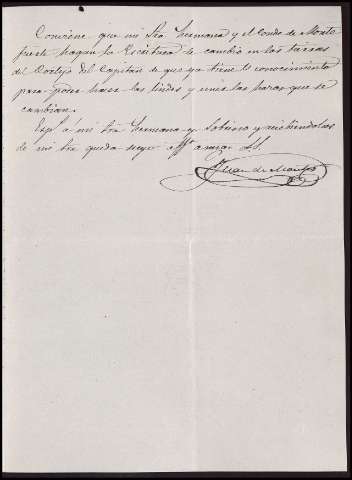 Conviene que mi Sra hermana y el Conde de Monte
fuerte hagan la Escritura de cambio en las tierras
del Cortijo del Capitan de que ya tiene V. conocimiento
para poner hacer las lindes y unir las hazas que se
cambian.
Espr. á mi Sra hermana y Sobrino y
de mi Sra queda suyo afº amigo SS.
Juan de